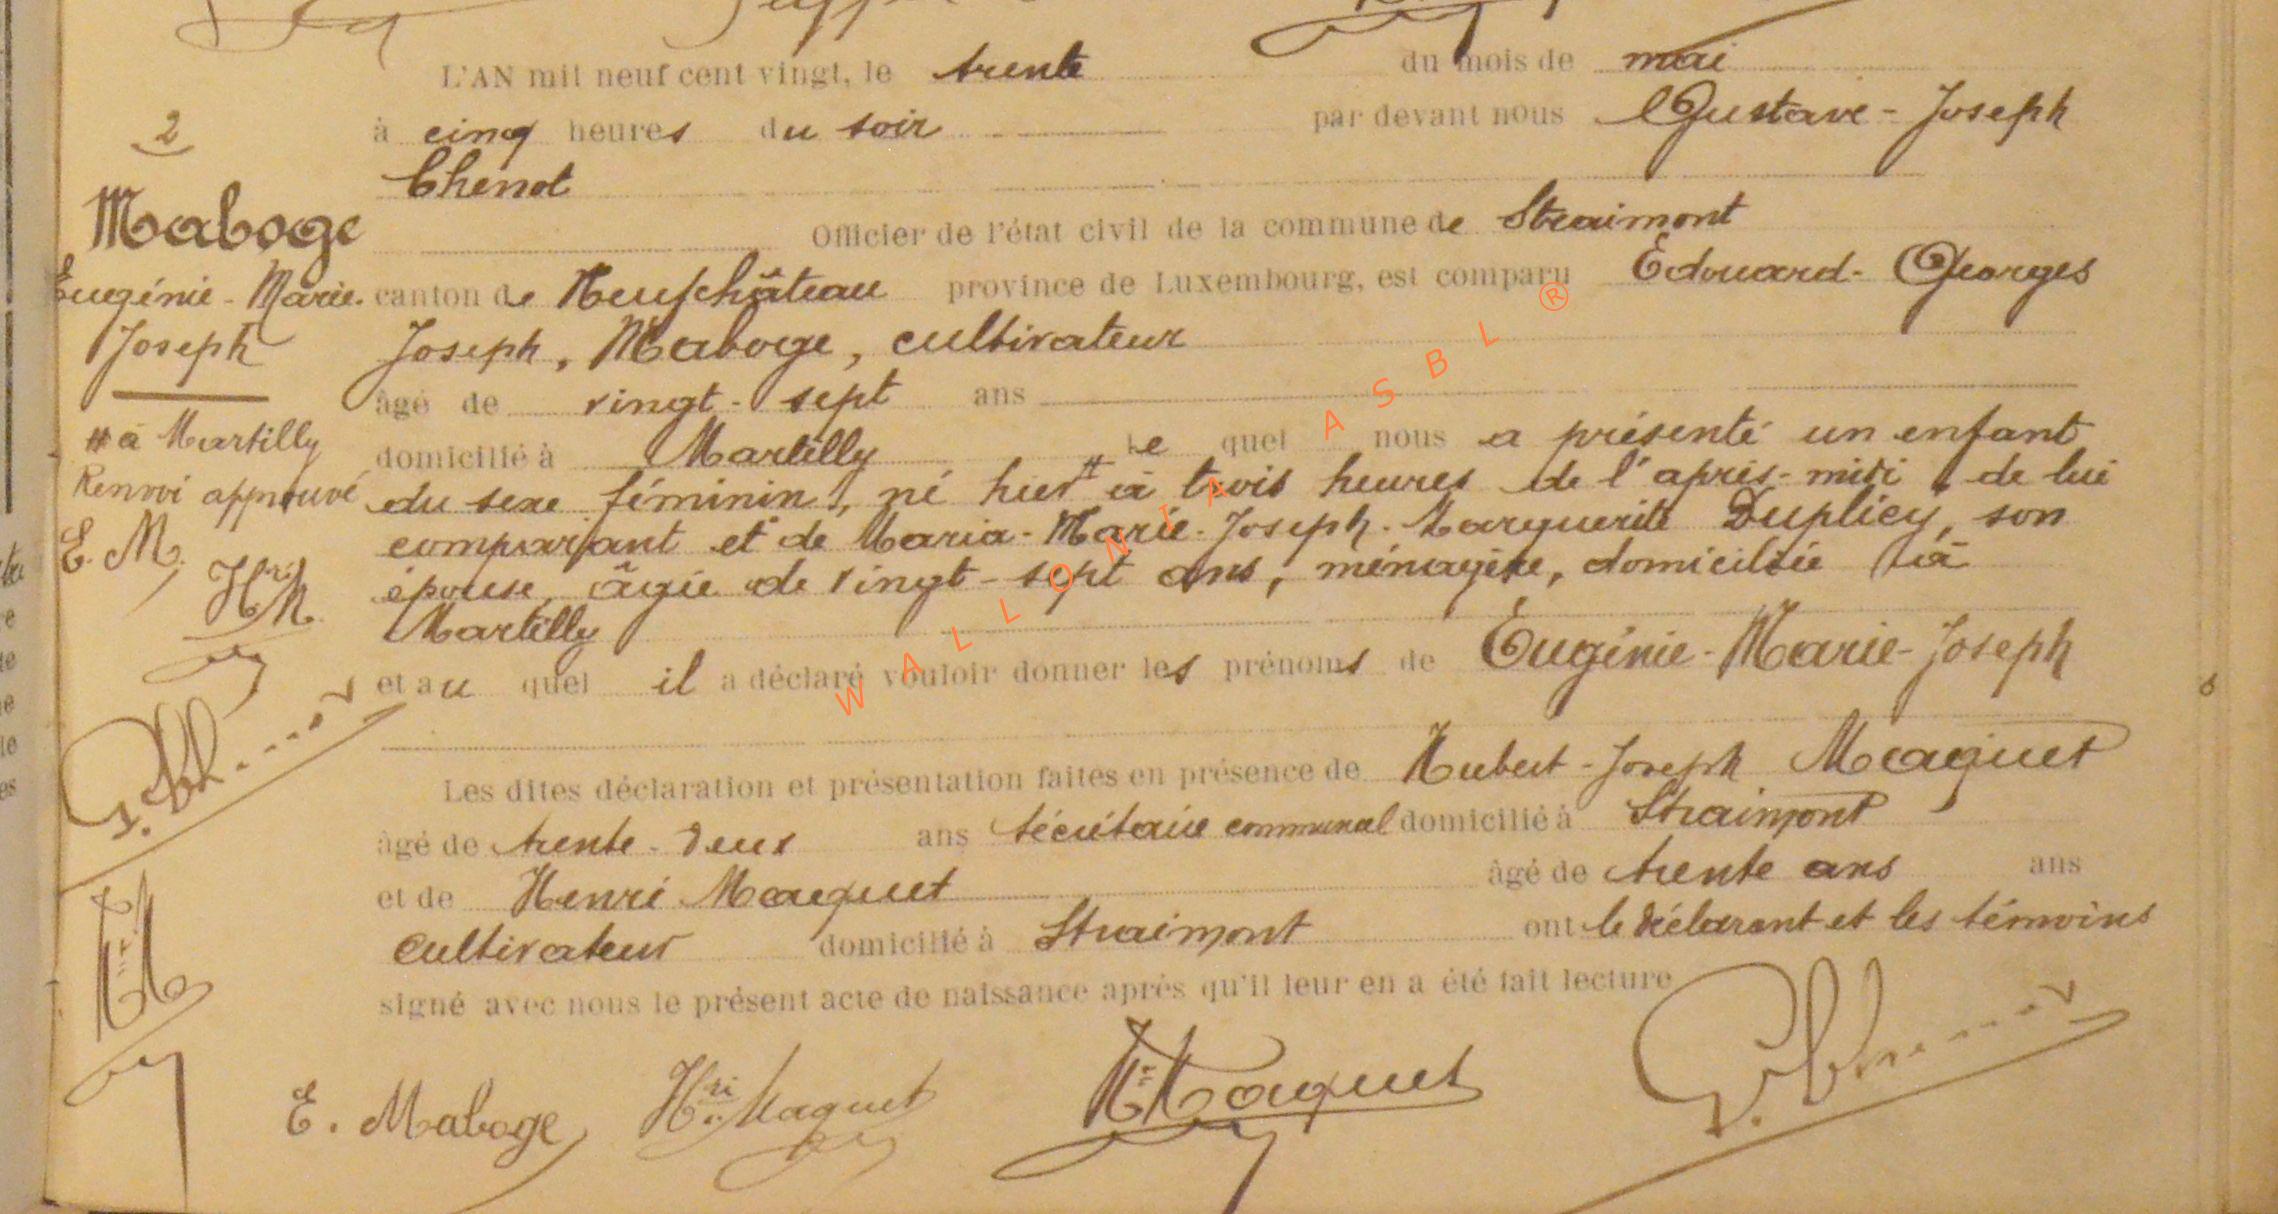 2
Maboge
Eugénie-Marie-
Joseph
# à Martilly
Renvoi approuvé
E. M.
Hri M.
L'AN mil neuf cent vingt, le trente du mois de mai
à cinq heures du soir par devant nous Gustave-Joseph
Chenot
Officier de l'état civil de la commune de Straimont
canton de Neufchâteau province de Luxembourg, est comparu Edouard-Georges
Joseph, Maboge, cultivateur
âgé de vingt-sept ans
domicilié à Martilly le quel nous a présenté un enfant
du sexe féminin, né hier # à trois heures de l'après-midi, de lui
comparant et de Maria-Marie-Joseph-Marguerite Duplicy, son
épouse, âgée de vingt-sept ans, ménagère, domiciliée à
Martilly
et au quel il a déclaré vouloir donner les prénoms de Eugénie-Marie-Joseph
Les dites déclaration et présentation faites en présence de Hubert-Joseph Maquet
âgé de trente-deux ans sécrétaire communal domicilié à Straimont
et de Henri Maquet âgé de trente ans ans
cultivateur domicilié à Straimont ont le déclarant et les témoins
signé avec nous le présent acte de naissance après qu'il leur en a été fait lecture
E. Maboge Hri Maquet Maquet
WALLONIA ASBL ®